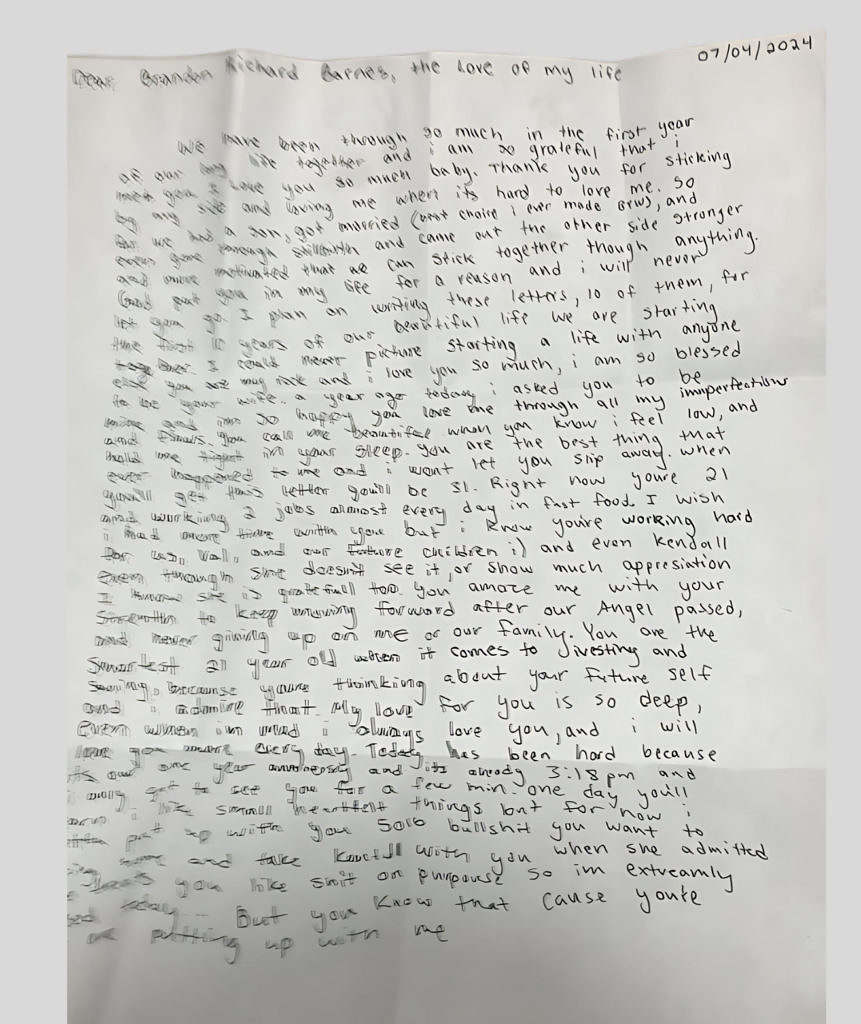 07/04/2024
Dear Brandon Richard Barnes, the Love of my life
We have been through so much in the first year
of our long life together and i am so grateful that i
met you I love you so much baby. Thank you for sticking
by my side and loving me when its hard to love me. so
far we had a son, got married (best choice i ever made BTW), and
even gone through stillbirth and came out the other side stronger
and more motivated that we can stick together though anything.
God put you in my life for a reason and i will never
let you go. I plan on writing these letters, 10 of them, for
the first 10 years of our beautiful life we are starting
I could never picture starting a life with anyone
else you are my rock and i love you so much, i am so blessed
to be your wife. a year ago today i asked you to be
mine and im so happy you love me through all my imnperfections
and flaws. You call me beautiful when you know i feel low, and
hold me tight in your sleep. you are the best thing that
ever happened to me and i wont let you slip away. when
you'll get this letter you'll be 31. Right now youre 21
and working 2 jobs almost every day in fast food. I wish
i had more time with you but i know you're working hard
for us, Val, and our future children :) and even Kendall
even though she doesnt see it, or show much appresiation
I know she is gratefull too. You amaze me with your
strength to keep moving forward after our Angel passed,
and never giving up on me or our family. You are the
smartest 21 year old when it comes to divesting and
saving, because youre thinking about your future self
and i admire that. My love for you is so deep,
even when im mad i always love you, and i will
love you more every day. Today has been hard because
its our one year anniversy and its alredy 3:18 pm and
i only get to see you for a few min. one day you'll
i like small heartfelt things but for now i
put up with you bullshit you want to
and take Kendall with you when she admitted
you like shit on purpouse so im extreamly
today... But you know that cause youre
putting up with me